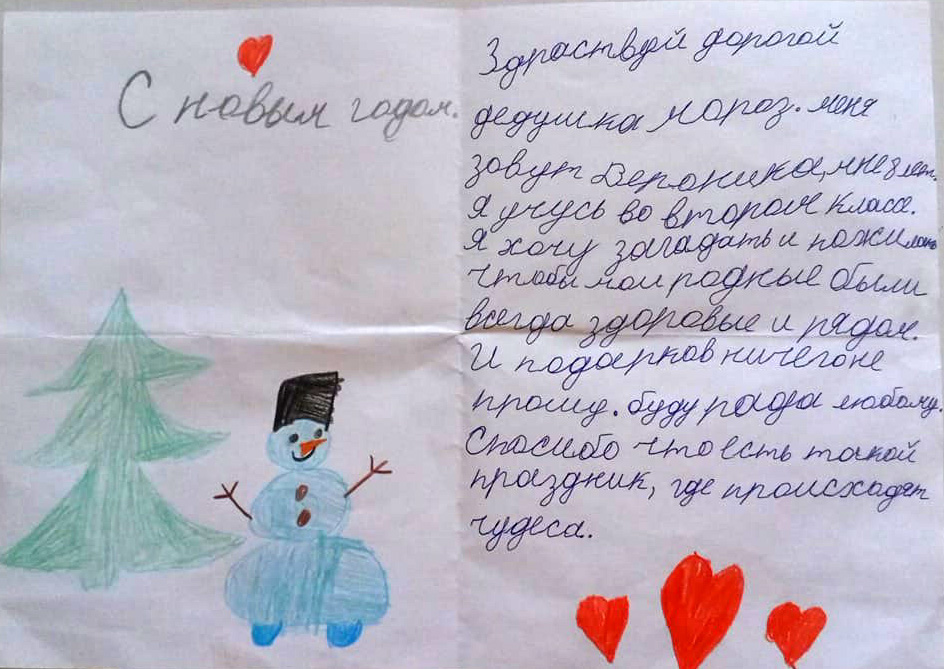 С новым годом.
Здраствуй дорогой
дедушка мороз. меня
зовут Вероника, мне 8 лет.
Я учусь во втором класе.
Я хочу загадать и пожилать
чтобы мои родные были
всегда здоровые и рядом.
И подарков ничего не
прошу. буду рада любому.
Спасибо что есть такой
праздник, где происходят
чудеса.